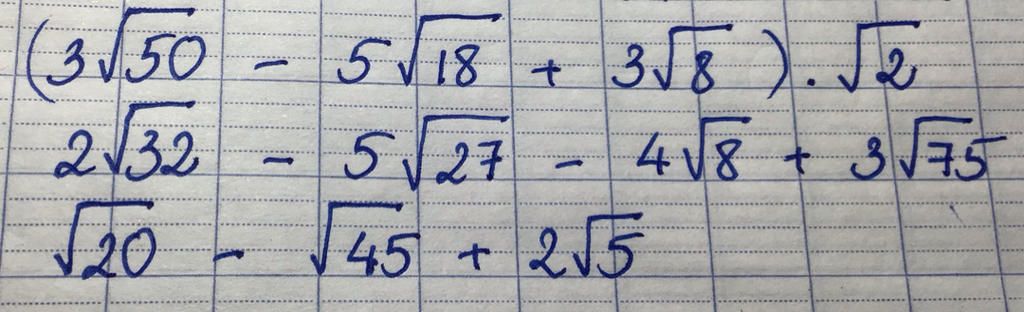 (3√50 - 5√18 + 3√8) . √2
2√32 - 5√27 - 4√8 + 3√75
√20 - √45 + 2√5